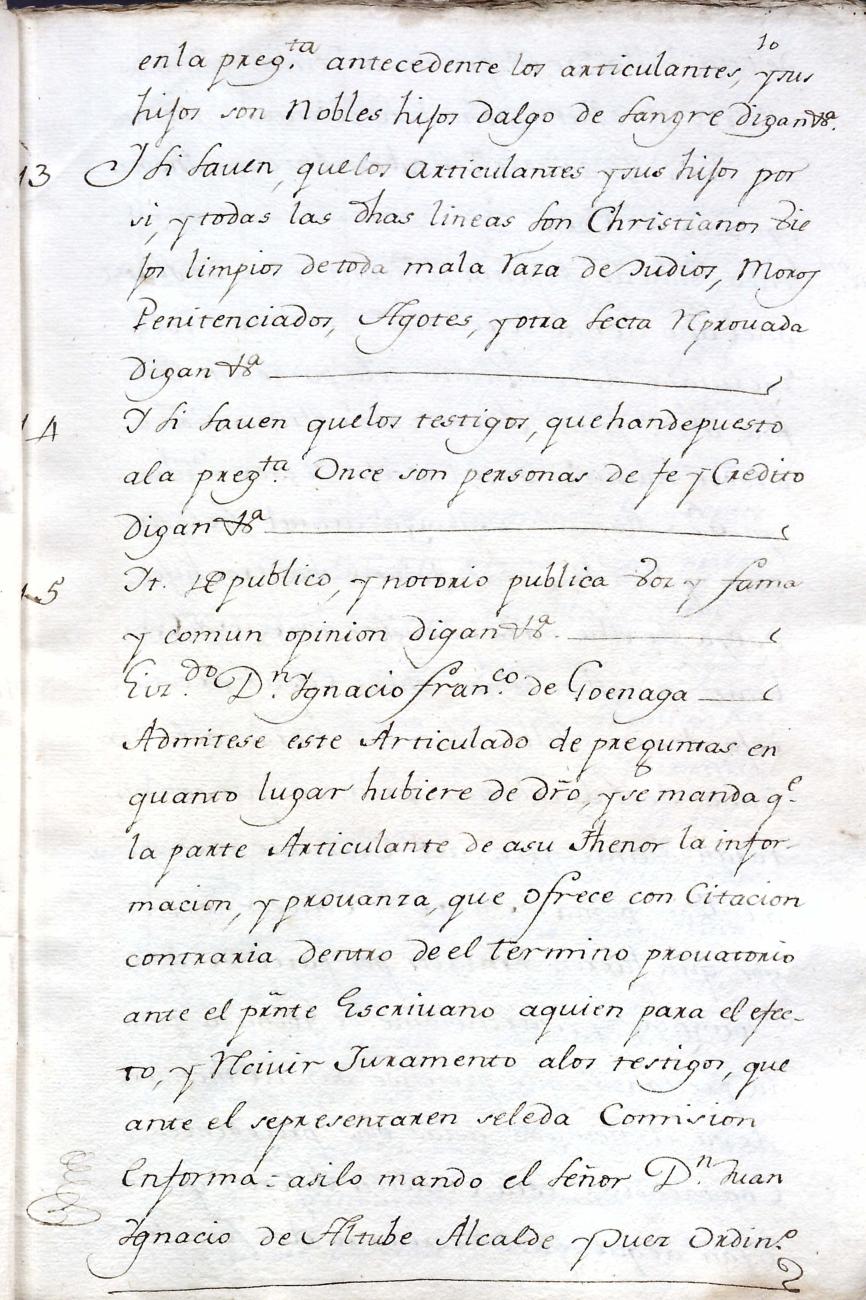 10
en la preg.ta antecedente los articulantes, y sus
hijos son Nobles hijos dalgo de sangre digan &a.
13 Y si saven, que los Articulantes y sus hijos por
si, y todas las dhas lineas son Christianos vie
jos limpios de toda mala raza de Judios, Moros
Penitenciados, Agotes, y otra secta reprovada
digan &a
14 Y si saven que los testigos, que han depuesto
a la preg.ta Once son personas de fe y Credito
digan &a
15 Yt. de publico, y notorio publica voz y fama
y comun opinion digan &a.
Liz.do D.n Ignacio fran.co de Goenaga
Admitese este Articulado de preguntas en
quanto lugar hubiere de dr̃o, y se manda q.e
la parte Articulante de a su thenor la infor-
macion, y provanza, que ofrece con Citacion
contraria dentro de el termino provatorio
ante el pr̃nte Escrivano a quien para el efec-
to, y recivir Juramento a los testigos, que
ante el se presentaren se le da Comision
en forma: asi lo mando el señor D.n Juan
Ignacio de Altube Alcalde y Juez Ordin.o